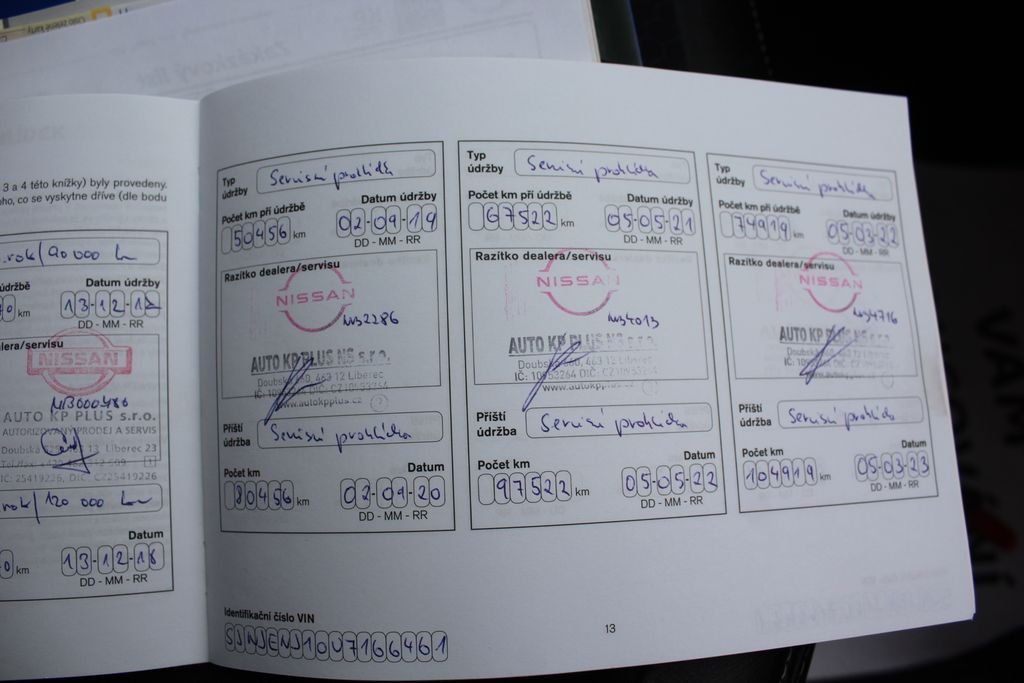 Zakázkový list
3 a 4 této knížky) byly provedeny.
oho, co se vyskytne dříve (dle bodu
rok/90 000 km
údržbě Datum údržby
0 km 13-12-1
DD - MM - RR
alera/servisu
NISSAN
AUTO KP PLUS s.r.o.
AUTORIZOVANÝ PRODEJ A SERVIS
Doubská 13 Liberec 23
IČ: 25419226, DIČ: CZ25419226
rok/120 000 km
Datum
0 km 13-12-18
DD - MM - RR
Typ údržby Servisní prohlídka
Počet km při údržbě Datum údržby
50456 km 02-09-19
DD - MM - RR
Razítko dealera/servisu
NISSAN
W32286
AUTO KP PLUS NS s.r.o.
Doubská 463 12 Liberec
IČ: 10953264 DIČ: CZ10953264
www.autokpplus.cz
Příští údržba Servisní prohlídka
Počet km Datum
80456 km 02-09-20
DD - MM - RR
Typ údržby Servisní prohlídka
Počet km při údržbě Datum údržby
67522 km 05-05-21
DD - MM - RR
Razítko dealera/servisu
NISSAN
W34013
AUTO KP PLUS NS s.r.o.
Doubská 463 12 Liberec
IČ: 10953264 DIČ: CZ10953264
www.autokpplus.cz
Příští údržba Servisní prohlídka
Počet km Datum
97522 km 05-05-22
DD - MM - RR
Typ údržby Servisní prohlídka
Počet km při údržbě Datum údržby
74919 km 05-03-22
DD - MM - RR
Razítko dealera/servisu
NISSAN
W34716
AUTO KP PLUS NS s.r.o.
Příští údržba Servisní prohlídka
Počet km Datum
104919 km 05-03-23
DD - MM - RR
Identifikační číslo VIN
SJNJENJ10U7166461
13